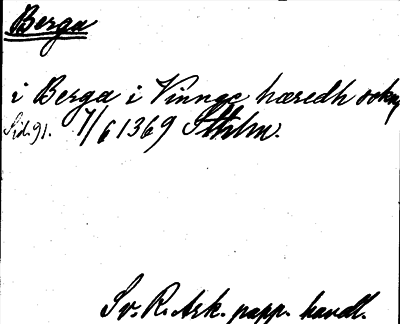 Berga
i Berga i Vinnge hæredh sokn
Sid. 91. 7/6 1369 Sthlm.
Sv. R. Ark. papp. handl.